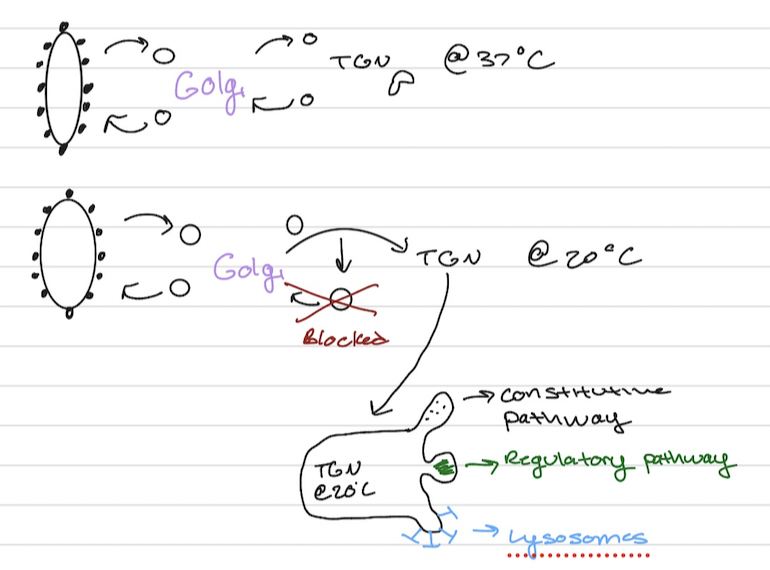 Golgi TGN @ 37°C
Golgi TGN @ 20°C
Blocked
Constitutive
pathway
TGN
@20°C
Regulatory pathway
Lysosomes